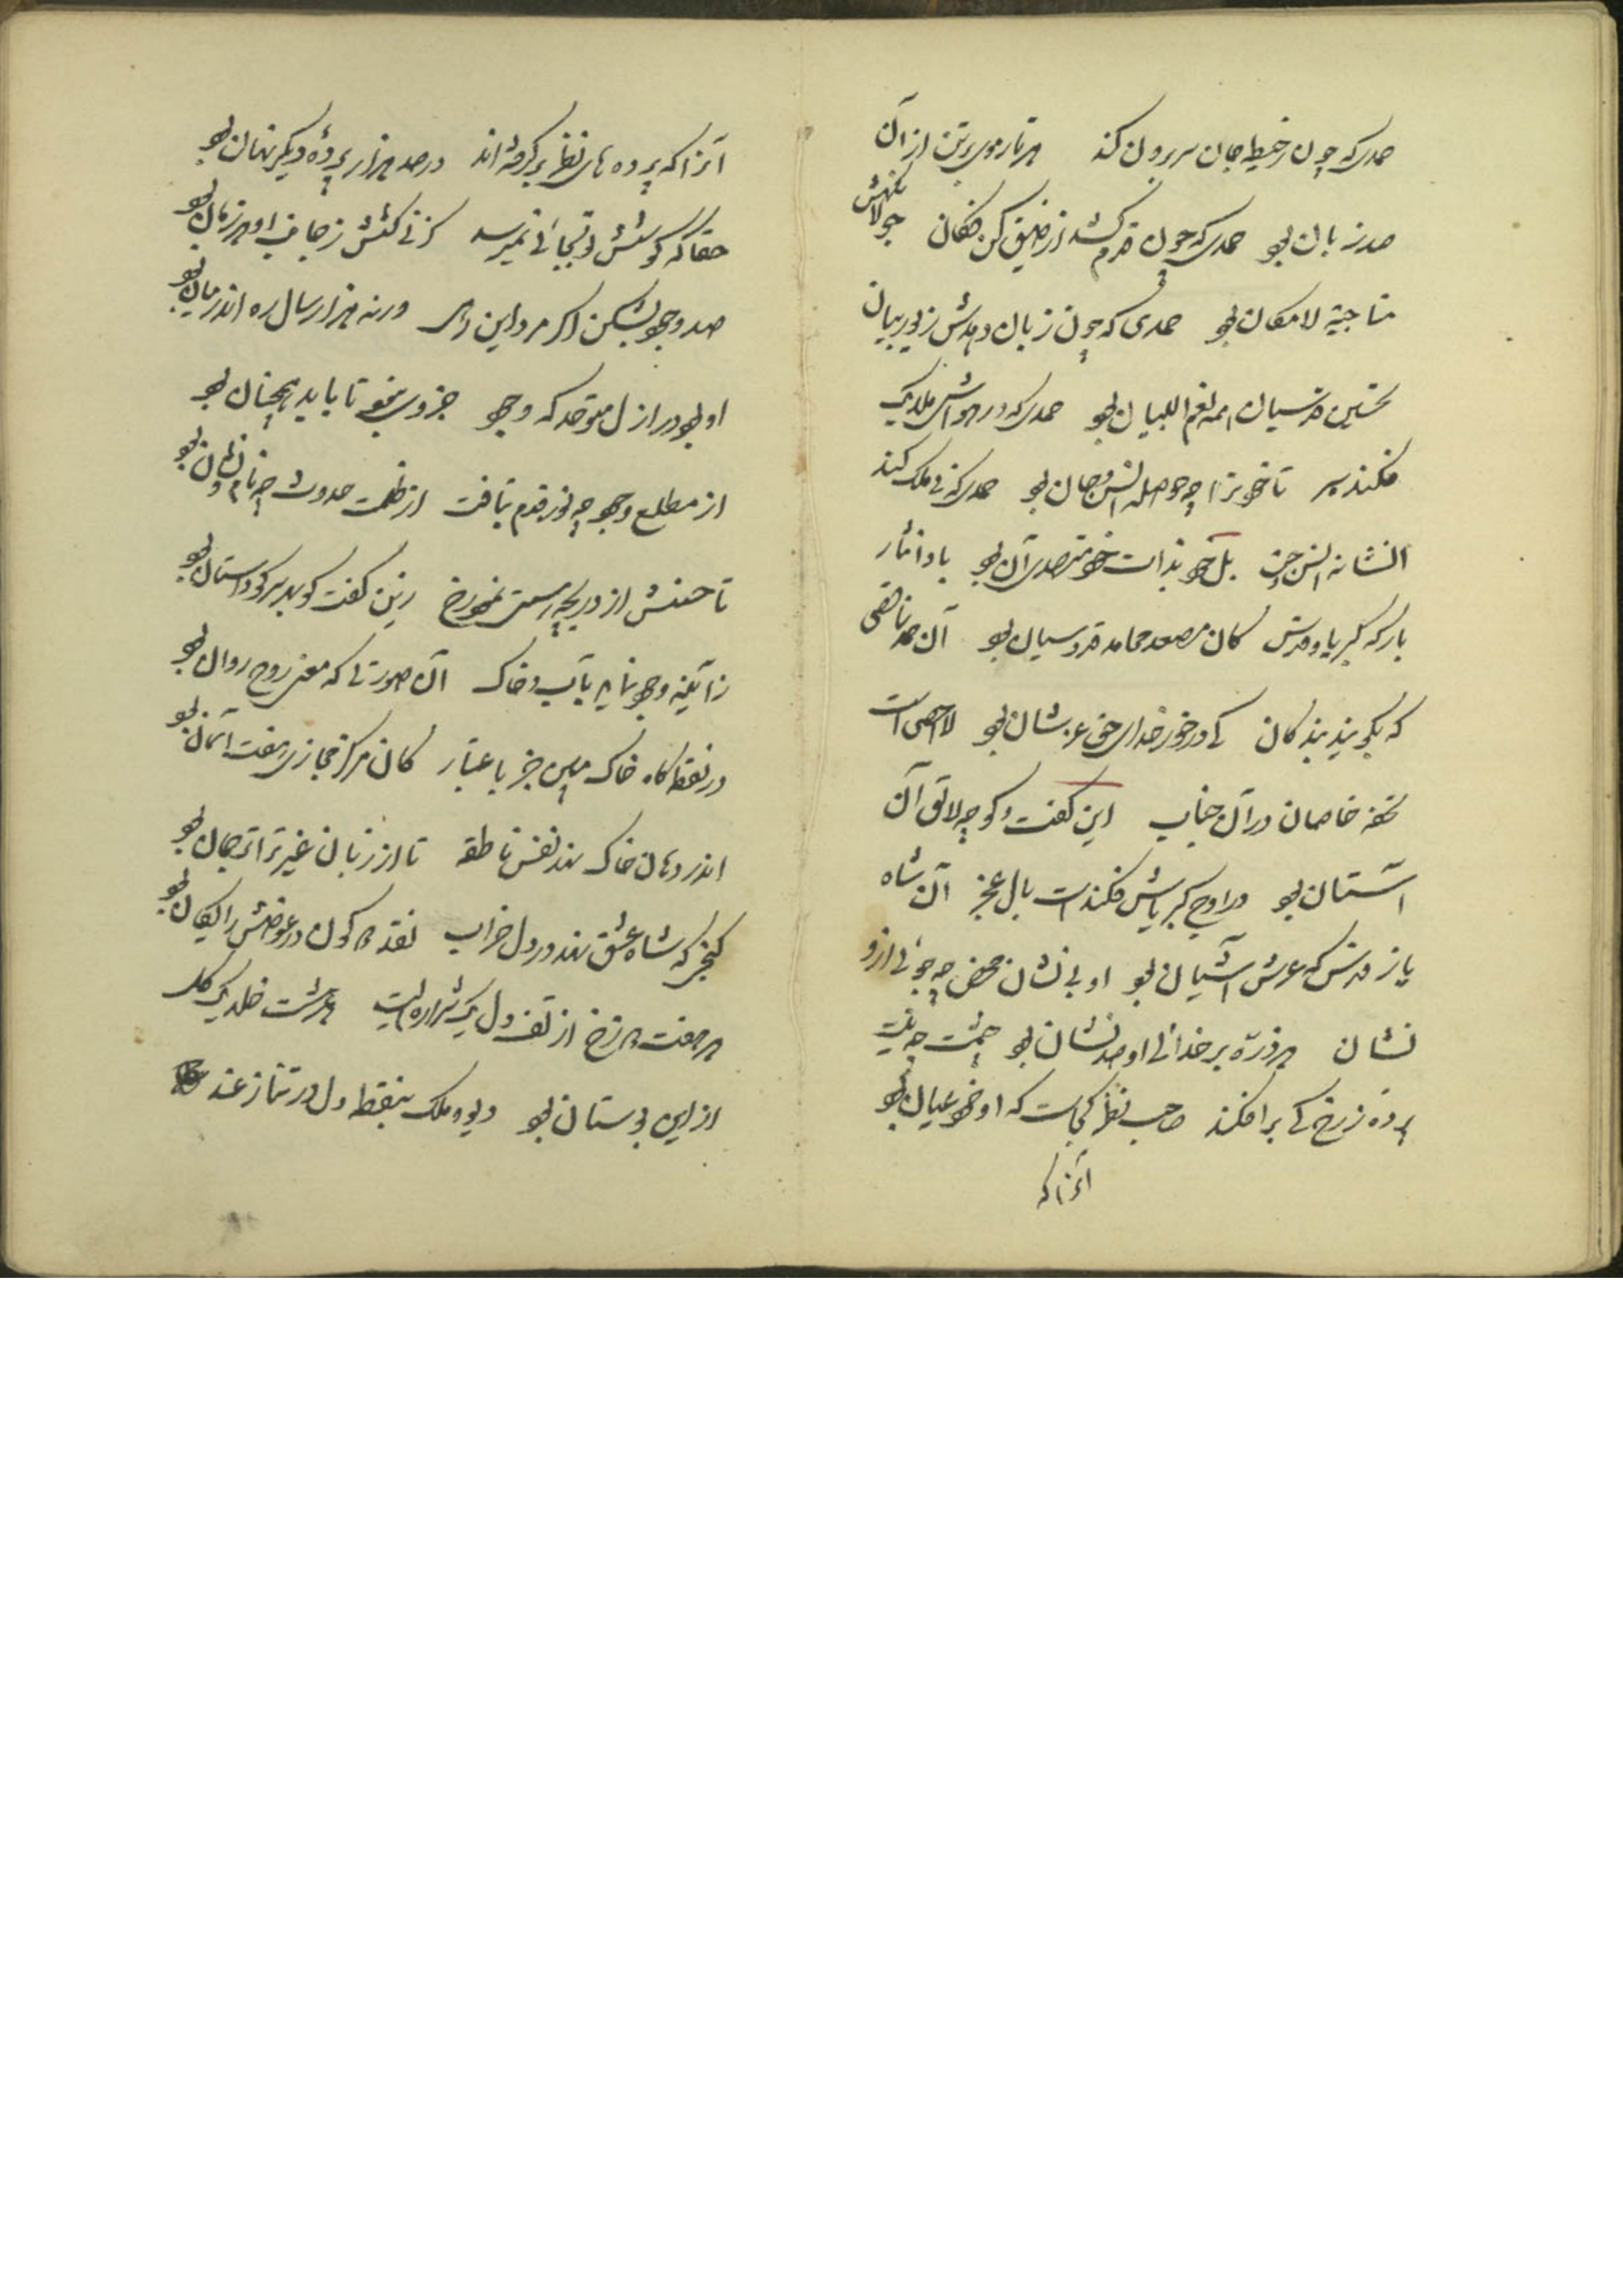 حمدی که چون ز خیطه جان سر برون کند هر تار موی بر تن از آن
صد زبان بود حمدی که چون قدم کشد از ضیق کن فکان جولانگهش
تا لامکان بود حمدی که چون زبان دهدش زیور بیان
تحسین قدسیان همه نعم البیان بود حمدی که در هواش ملایک
فکند پر تا خود ترا چه حوصله انس و جان بود حمدی که نی ملک کند
انشا نه انس و جن بل خود بذات خود متصدی آن بود بادا نثار
بارگه کبریا و قدس کان مصعد محامد قدوسیان بود آن حمد ناقصی
که بگویند بندگان کی در خور خدای عز شان بود لا احصی است
تحفه خاصان در آن جناب این گفت و گو چه لایق آن
آستان بود در اوج کبریاش فکنده است بال عجز آن شاه
باز قدس که عرش آشیان بود او بی نشان محض چه جوئی ازو
نشان هر ذره بر خدائی او صد نشان بود چشمت چه نیست
پرده ز رخ کی برافکند صاحب نظر کجاست که او خود عیان بود
آنرا که
آنرا که پرده های نظر برگرفته اند در صد هزار پرده دیگر نهان بود
حقا که کوشش تو بجائی نمیرسد گر نی کشش ز جانب او هر زمان بود
صد وجود بشکن اگر مرد این رهی ورنه هزار سال ره اندر میان بود
او بود در ازل متوحد که وجود جز وی نبود تا بابد همچنان بود
از مطلع وجود چه نور قدم بتافت از ظلمت حدوث چه نام و نشان بود
تا حسنش از دریچه هستی نمود رخ زین گفت گوی پر سر کو داستان بود
ز آئینه وجود نماید بآب و خاک آن صورتی که معنی روح روان بود
در نقطه گاه خاک مبین جز باعتبار کان مرکز مجازی هفت آسمان بود
اندر دهان خاک نهد نفس ناطقه تا از زبان غیر ترا ترجمان بود
گنجی که شاه عشق نهد در دل خراب نقد دو کون در عوضش رایگان بود
هر هفت دوزخ از تف دل یک شراره ایست هر هشت خلد یک گل
از این بوستان بود دیو و ملک بنقطه دل در تنازعند